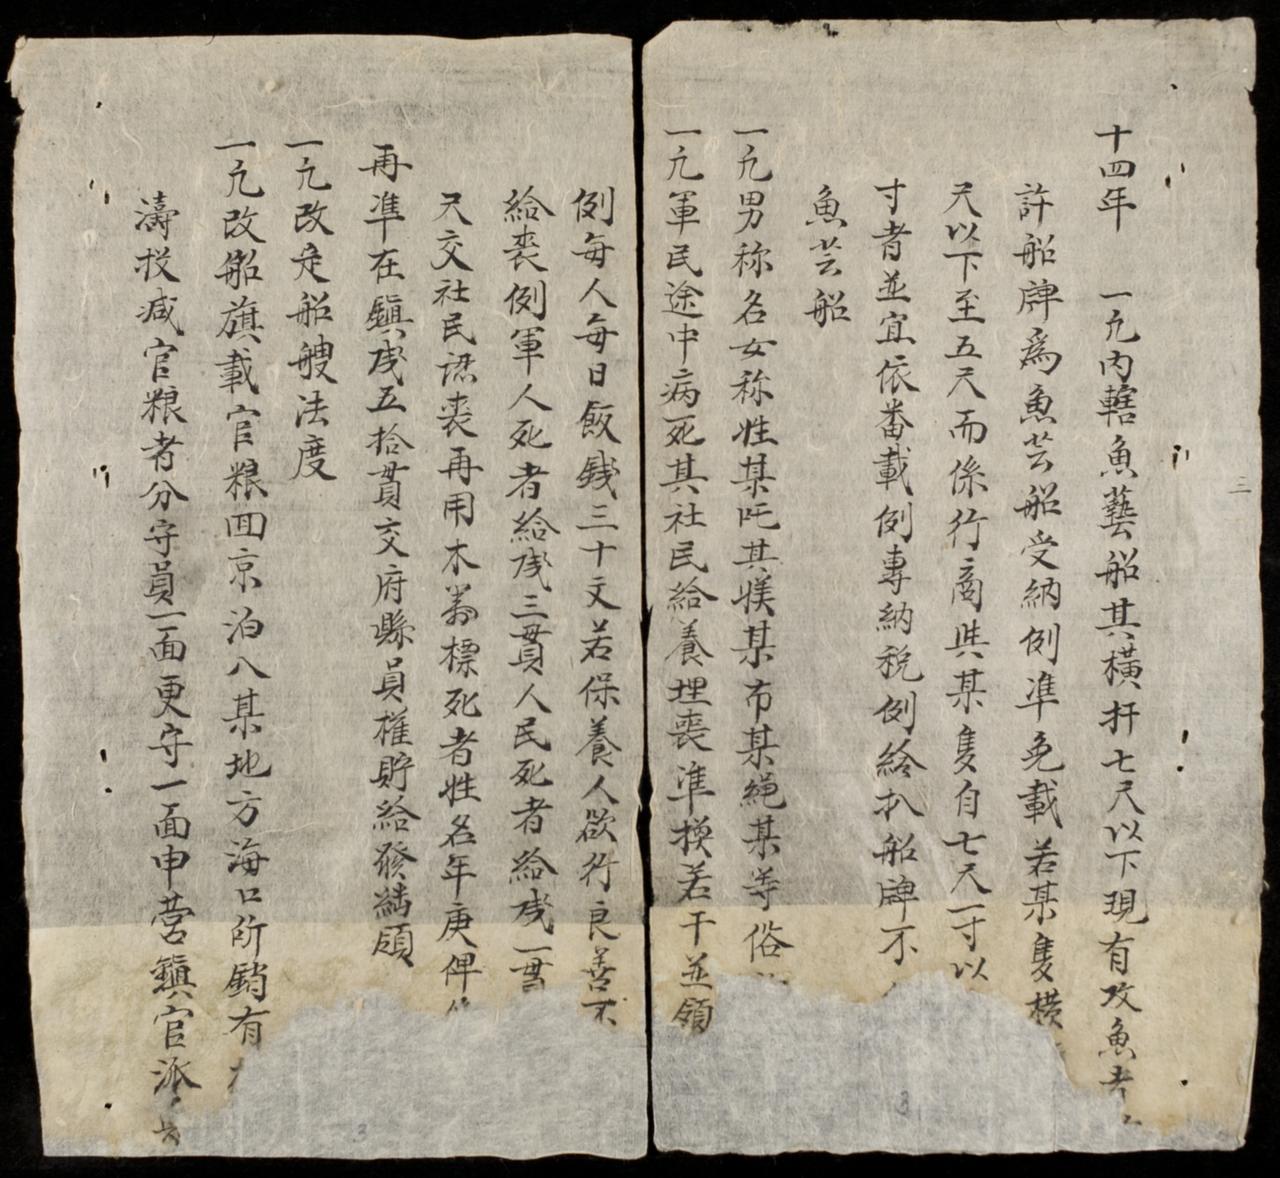 十四年 一凡内轄魚藝船其横扞七尺以下現有攻魚者
許船牌爲魚芸船受納例準免載若某隻横
尺以下至五尺而係行商與某隻自七尺一寸以
寸者並宜依番載例專納稅例給扒船牌不
魚芸船
一凡男称名女称姓某氏其媄某布某繩某等俗
一凡軍民途中病死其社民給養埋喪準換若干並領
例每人每日飯錢三十文若保養人欲行良善不
給喪例軍人死者給戋三貫人民死者給戋一貫
尺交社民認喪再用木蒭標死者姓名年庚俾
再準在鎮戋五拾貫交府縣員權貯給發繕頋
一凡改定船艘法度
一凡改船旗載官粮回京泊入某地方海口所銷有
濤投减官粮者分守員一面更守一面申營鎮官派
三
3
3